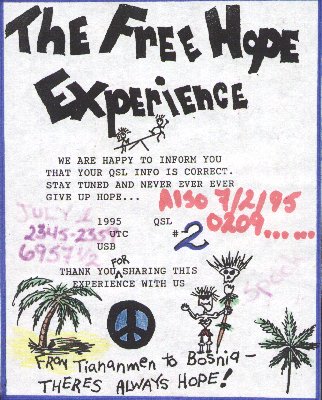 The Free Hope
Experience
WE ARE HAPPY TO INFORM YOU
THAT YOUR QSL INFO IS CORRECT.
STAY TUNED AND NEVER EVER EVER
GIVE UP HOPE...
ALSO 7/2/95
0209......
JULY 1
1995 QSL
2345-2359 UTC # 2
6957 1/2 USB
FOR
THANK YOU ^ SHARING THIS
EXPERIENCE WITH US
FROM Tiananmen to Bosnia -
THERES ALWAYS HOPE!